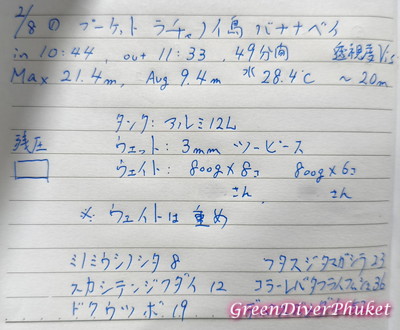 2/8 ① プーケット ラチャノイ島 バナナベイ
in 10:44, out 11:33, 49分間 透視度 Vis
Max 21.4m, Avg 9.4m 水 28.4℃ ~20m
タンク: アルミ12L
残圧 ウェット: 3mm ツーピース
ウェイト: 800g×8コ 800g×6コ
さん さん
※ ウェイトは重め
ミノミウミノシタ 8 フタスジタマガシラ 23
スカシテンジクダイ 12 コラーレバタフライフィッシュ 36
ドクウツボ 19
GreenDiverPhuket